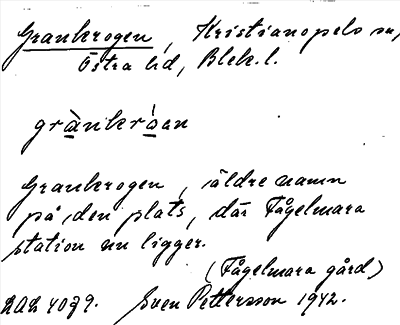 Grankrogen, Kristianopels sn,
Östra hd, Blek. l.
grànkróan
Grankrogen, äldre namn
på den plats, där Fågelmara
station nu ligger.
(Fågelmara gård)
Sven Pettersson 1942.